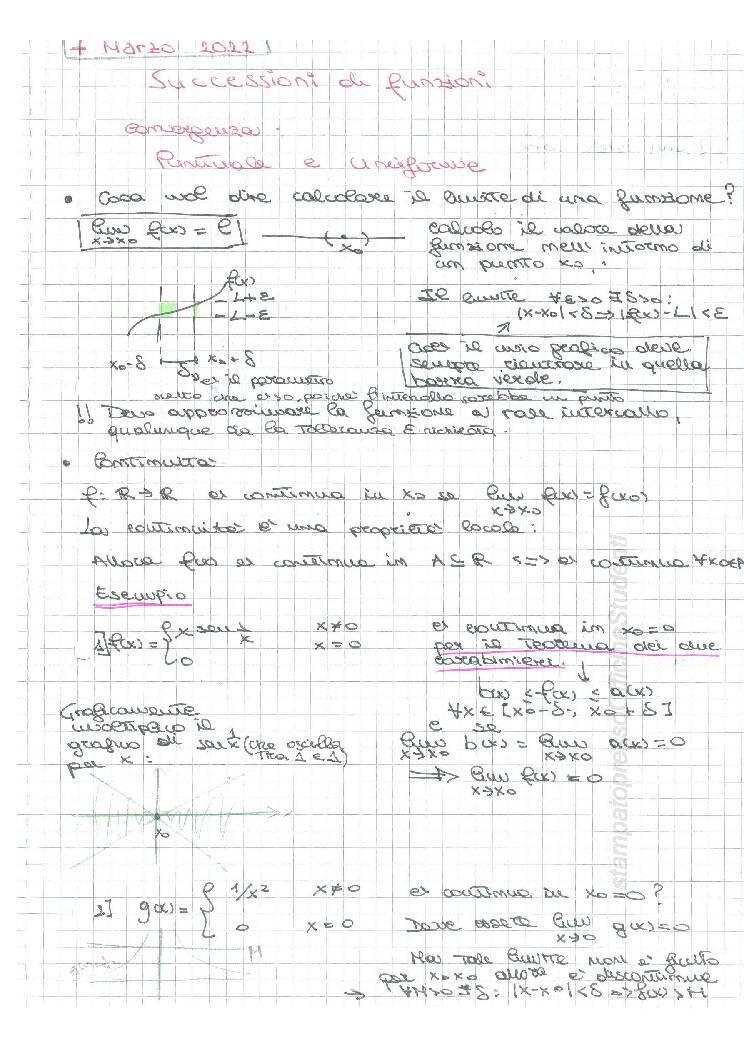 Marzo 2022
Successioni di funzioni
Convergenza
Puntuale e Uniforme
• Cosa vol dire calcolare il limite di una funzione?
lim f(x) = l
x→x0
x0
calcolo il valore della
funzione nell'intorno di
un punto x0.
f(x)
- L+ε
- L-ε
x0-δ x0+δ
δ
è il parametro
Il limite ∀ε>0 ∃δ>0:
|x-x0|<δ ⇒ |f(x)-L|<ε
Cioè il mio grafico deve
sempre rientrare in quella
barra verde.
perché l'intervallo sarebbe un punto
!! Devo approssimare la funzione a tale intervallo,
qualunque sia la tolleranza ε richiesta.
• Continuità
f: R→R è continua in x0 se lim f(x)=f(x0)
x→x0
La continuità è una proprietà locale:
Allora f(x) è continua in A⊆R <=> è continua ∀x0∈A
Esempio
1] f(x) = { x sen 1/x x≠0
0 x=0
è continua in x0=0
per il Teorema dei due
carabinieri.
b(x) ≤ f(x) ≤ a(x)
∀x ∈ [x0-δ, x0+δ]
e se
lim b(x) = lim a(x) = 0
x→x0 x→x0
⇒ lim f(x) = 0
x→x0
Graficamente
moltiplico il
grafico di sen 1/x (che oscilla
tra 1 e 1)
per x:
x0
2] g(x) = { 1/x² x≠0
0 x=0
è continua in x0=0?
Deve essere lim g(x)=0
x→0
M
Ma tale limite non è finito
per x→x0 allora è discontinua
→ ∀M>0 ∃δ: |x-x0|<δ ⇒ f(x)>M
stampato presso Officine Studenti